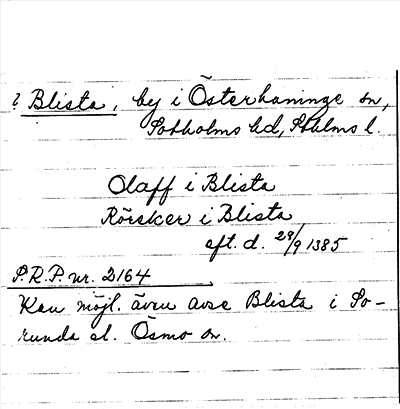 ? Blista, by i Österhaninge sn,
Sotholms hd, Sthlms l.
Olaff i Blista
Röreker i Blista
eft. d. 29/9 1385
P.R.P. nr. 2164
Kan möjl. även avse Blista i So-
runda el. Ösmo sn.